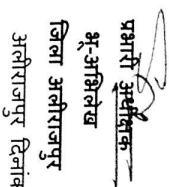 प्रभारी अधीक्षक
भू-अभिलेख
जिला अलीराजपुर
अलीराजपुर दिनांक